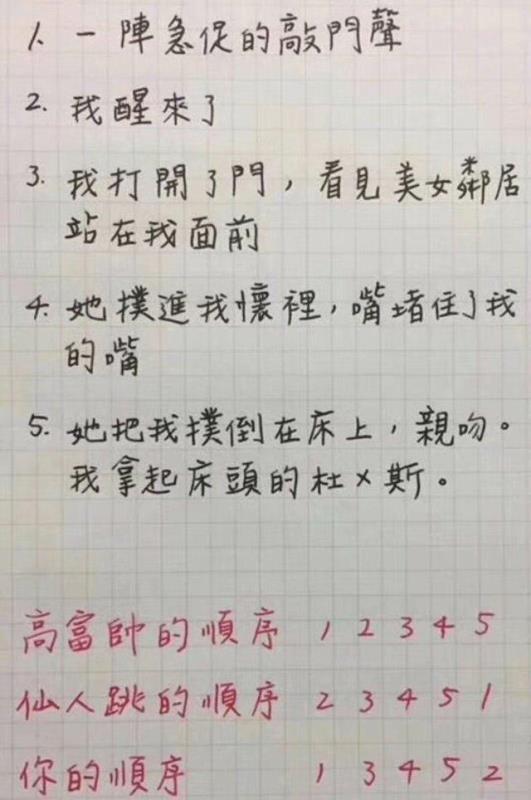 1. 一陣急促的敲門聲
2. 我醒來了
3. 我打開了門，看見美女鄰居
站在我面前
4. 她撲進我懷裡，嘴堵住了我
的嘴
5. 她把我撲倒在床上，親吻。
我拿起床頭的杜×斯。
高富帥的順序 1 2 3 4 5
仙人跳的順序 2 3 4 5 1
你的順序 1 3 4 5 2